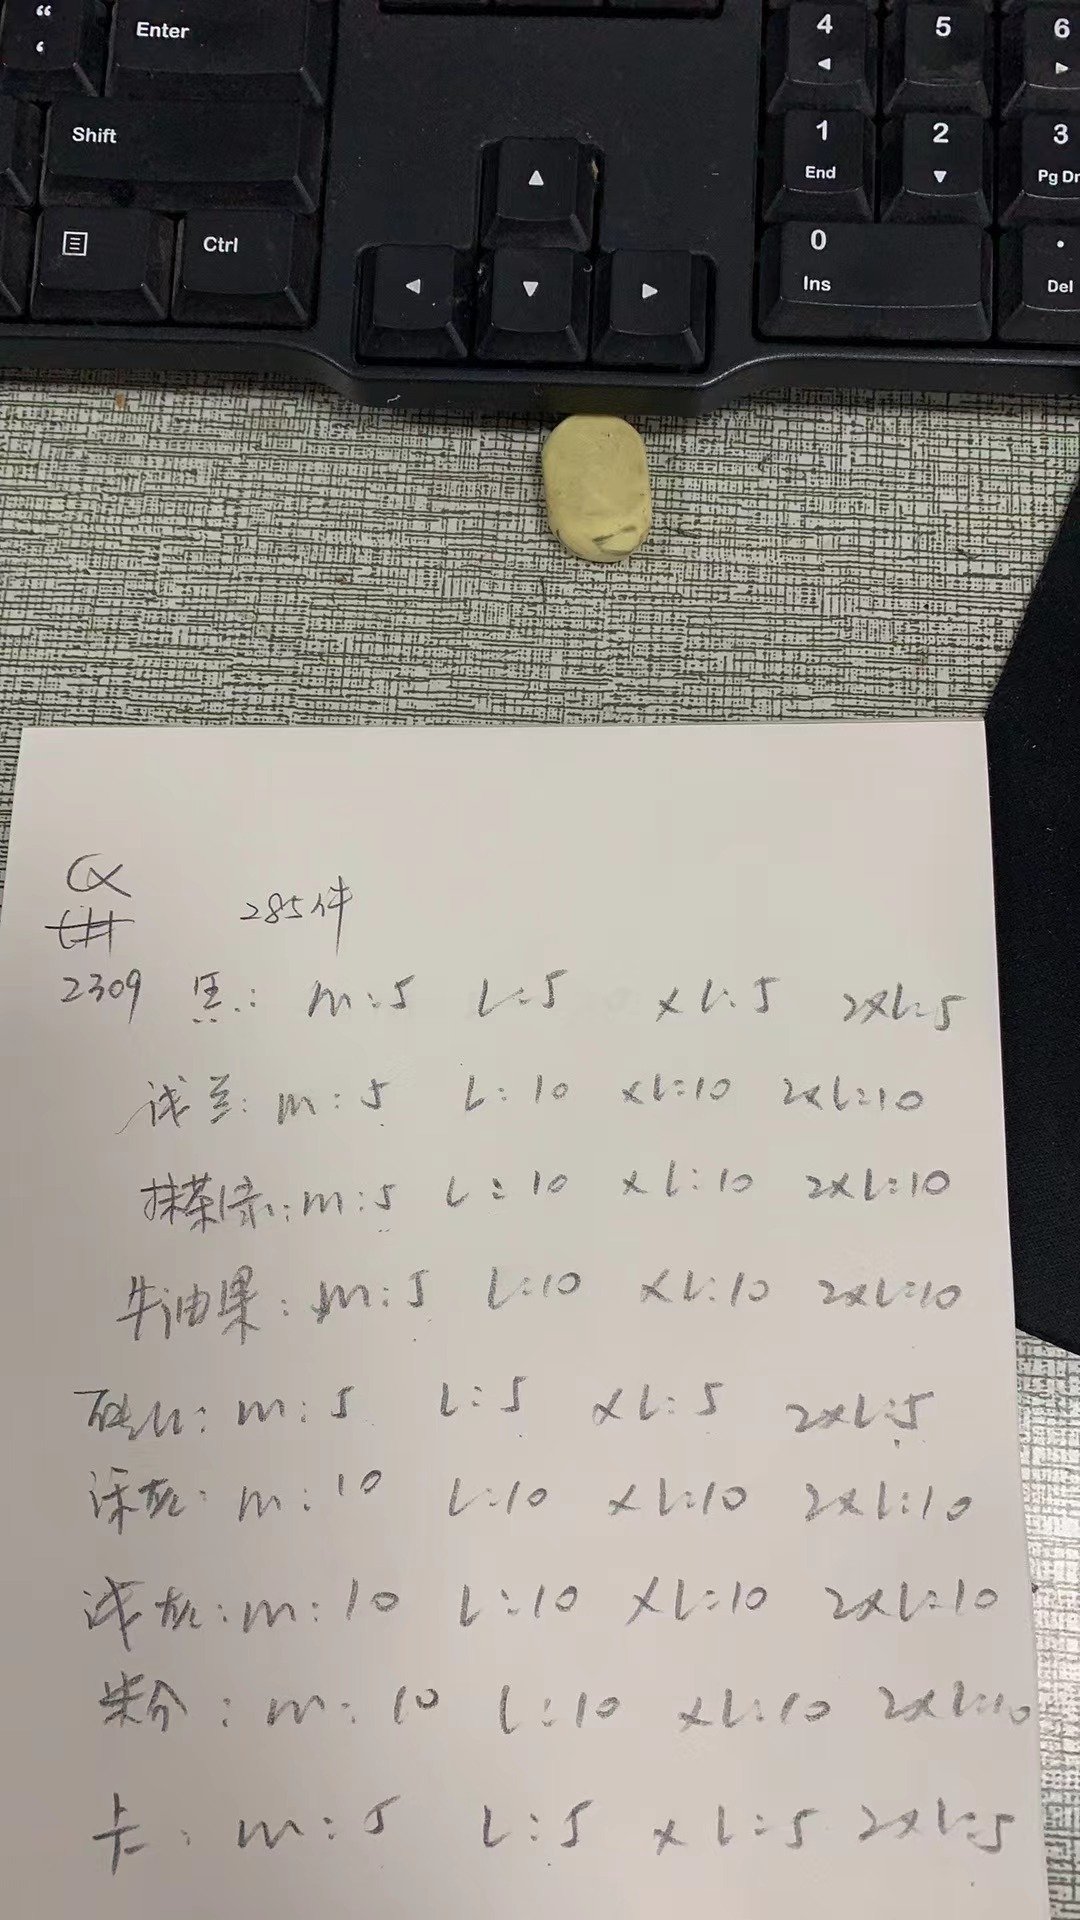 “ Enter 4 5 6
‘
Shift 1 2 3
End Pg Dn
Ctrl 0 .
Ins Del
CX
285件
2309 黑: m:5 L:5 XL:5 2XL:5
浅兰: m:5 L:10 XL:10 2XL:10
抹茶绿: m:5 L:10 XL:10 2XL:10
牛油果: m:5 L:10 XL:10 2XL:10
m:5 L:5 XL:5 2XL:5
深灰: m:10 L:10 XL:10 2XL:10
浅灰: m:10 L:10 XL:10 2XL:10
粉: m:10 L:10 XL:10 2XL:10
卡: m:5 L:5 XL:5 2XL:5